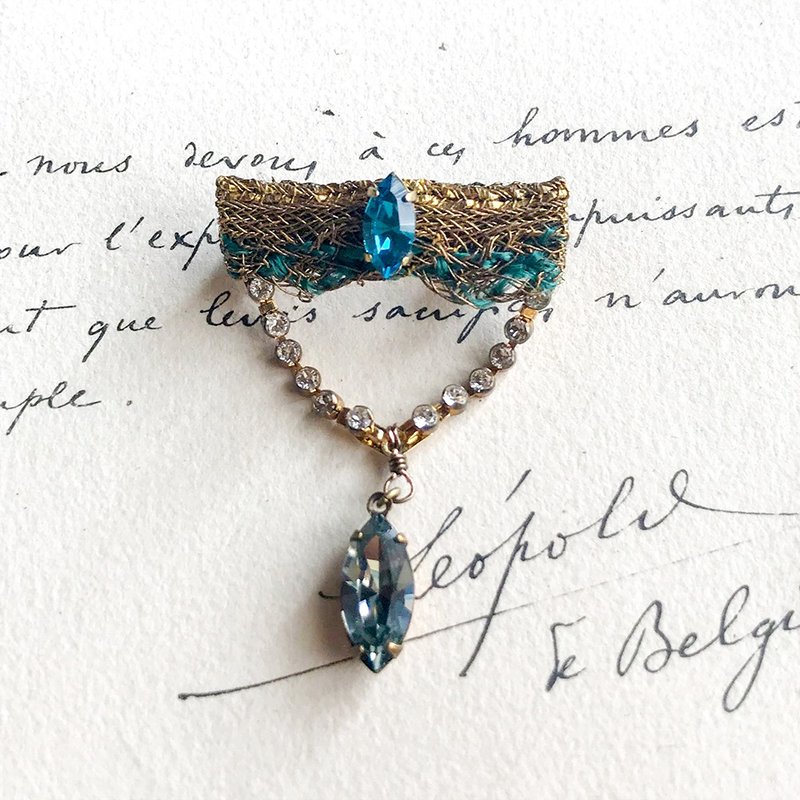 nous devons à ces hommes est
our l'exp puissants
t que leurs sacrifices n'auron
mple.
Léopold
de Belgi